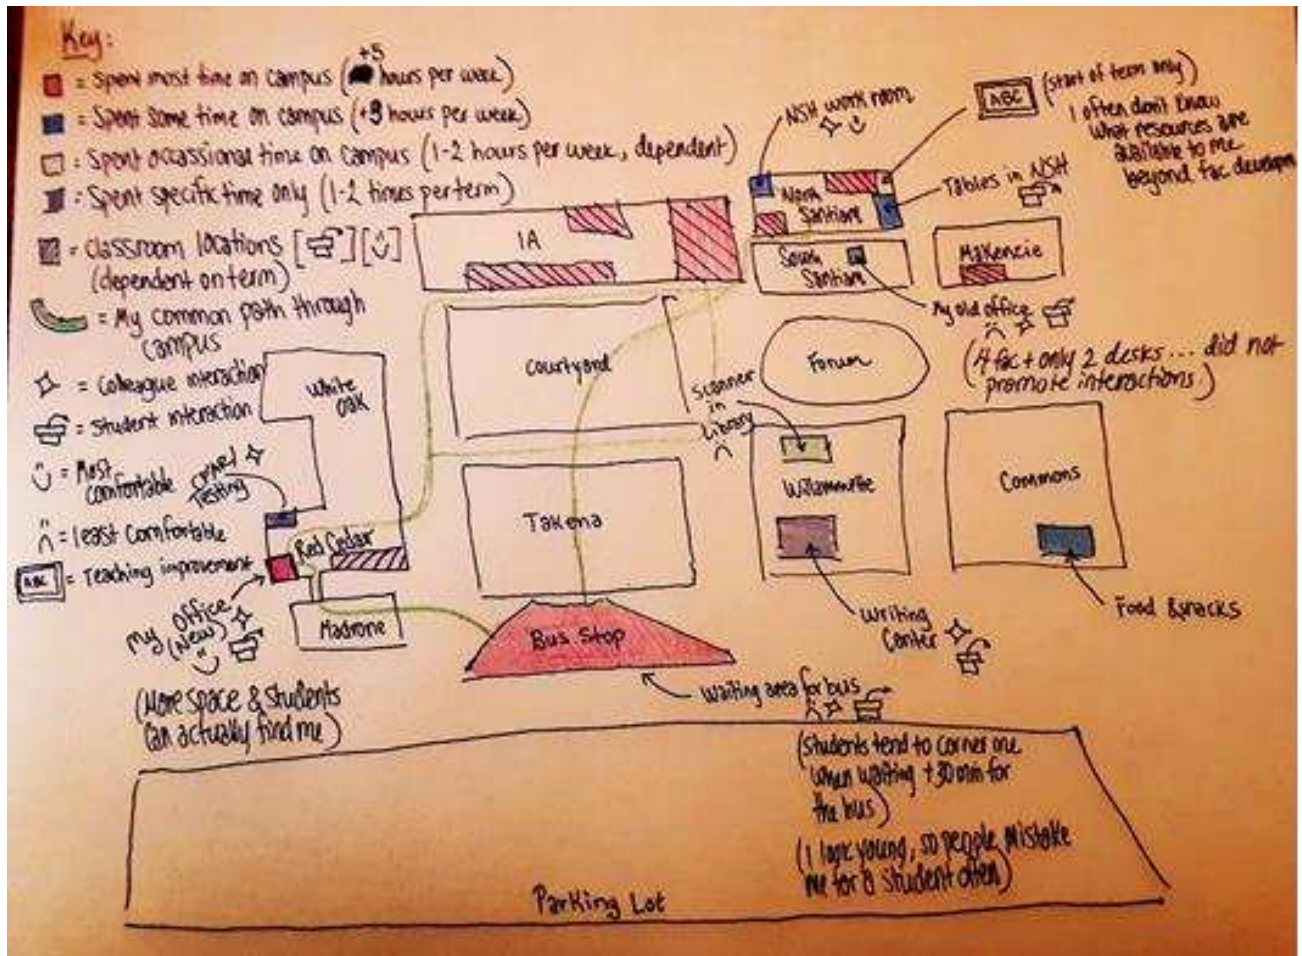 Key:
= Spent most time on campus (+5 hours per week)
= Spent some time on campus (+3 hours per week)
= Spent occassional time on campus (1-2 hours per week, dependent)
= Spent specific time only (1-2 times per term)
= Classroom locations [ ] [ ]
(dependent on term)
= My common path through
campus
= Colleague interaction
= Student interaction
= Most
comfortable
= least comfortable
ABC = Teaching improvement
NSH work room
ABC (start of term only)
I often don't know
what resources are
available to me
beyond fac developm
Tables in NSH
North
Santiam
IA
South
Santiam
McKenzie
My old office
(4 fac + only 2 desks... did not
promote interactions.)
Courtyard
Forum
White
Oak
Scanner
in
library
Testing
Takena
Willamette
Commons
Red Cedar
My office
(New)
(More space & students
can actually find me)
Madrone
Bus Stop
Writing
Center
Food & snacks
Waiting area for bus
(students tend to corner me
when waiting +30 min for
the bus)
(I look young, so people mistake
me for a student often)
Parking Lot